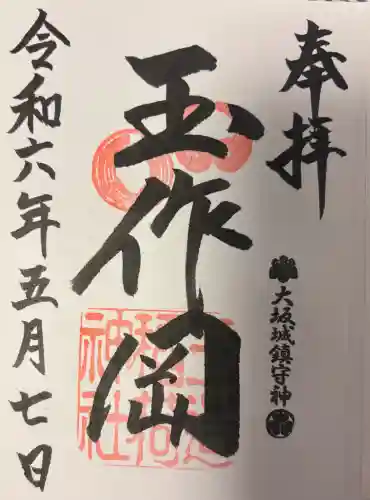 奉拝
大坂城鎮守神
玉作岡
玉造稲荷神社
令和六年五月七日